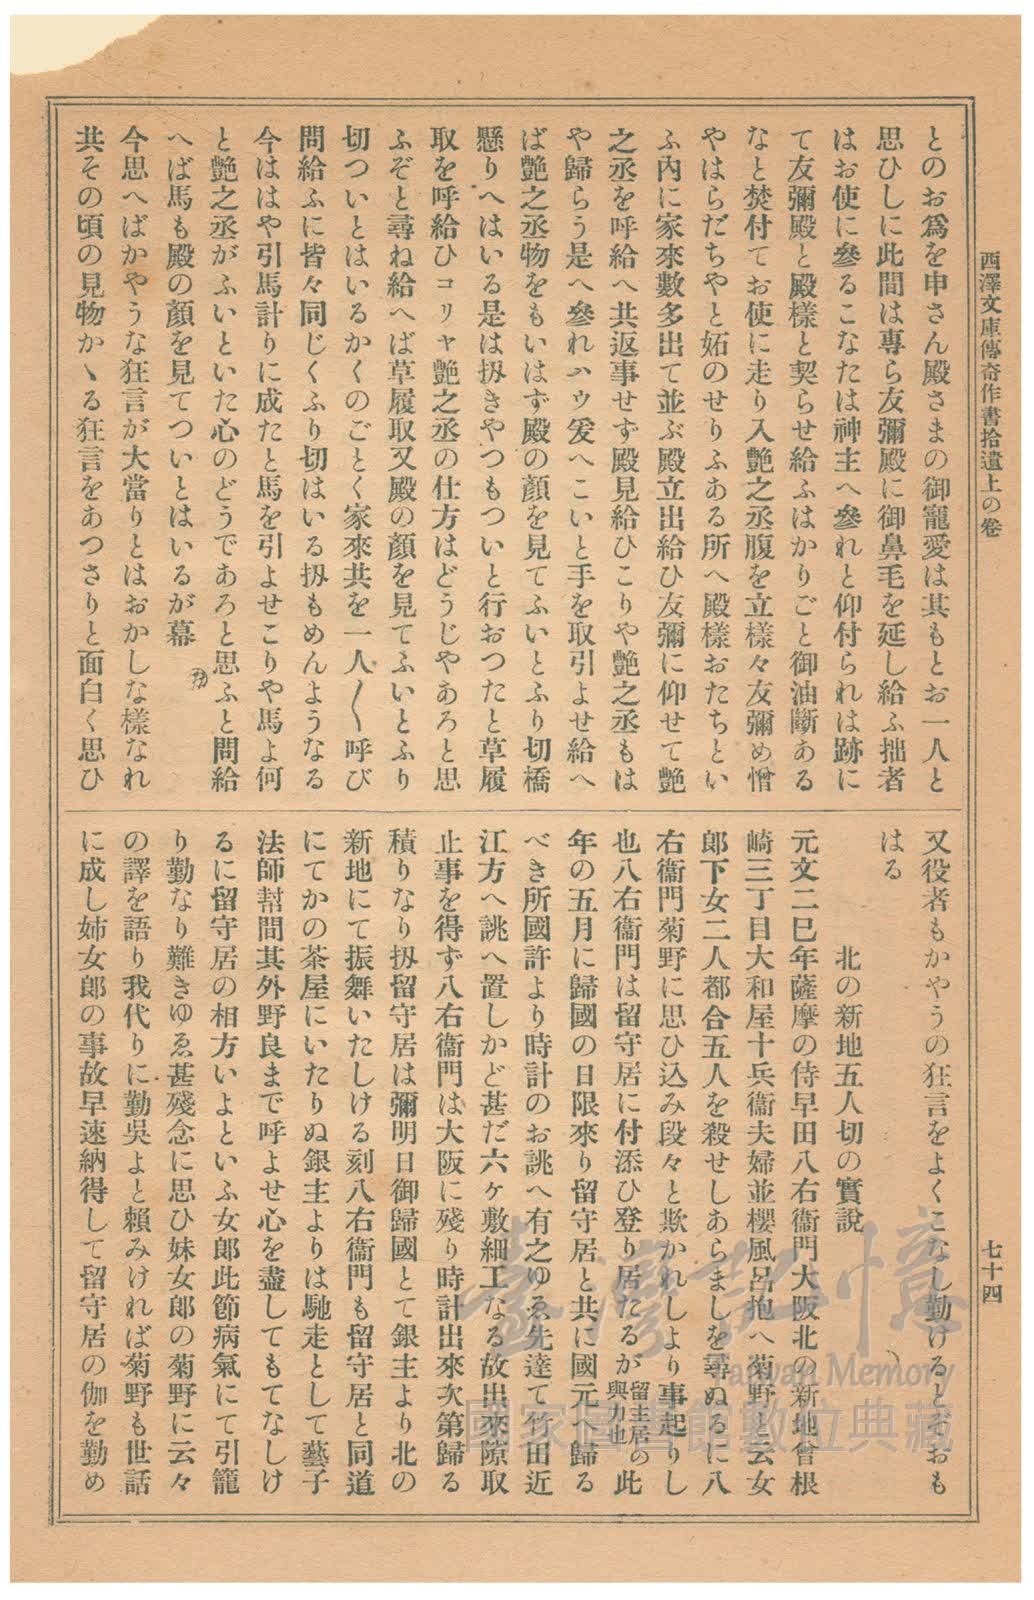 西澤文庫傳奇作書拾遺上の卷
七十四
とのお爲を申さん殿さまの御寵愛は其もとお一人と
思ひしに此間は專ら友彌殿に御鼻毛を延し給ふ拙者
はお使に參るこなたは神主へ參れと仰付られは跡に
て友彌殿と殿樣と契らせ給ふはかりごと御油斷ある
なと焚付てお使に走り入艶之丞腹を立樣々友彌め憎
やはらだちやと妬のせりふある所へ殿樣おたちとい
ふ內に家來數多出て並ぶ殿立出給ひ友彌に仰せて艶
之丞を呼給へ共返事せず殿見給ひこりや艶之丞もは
や歸らう是へ參れハウ爰へこいと手を取引よせ給へ
ば艶之丞物をもいはず殿の顏を見てふいとふり切橋
懸りへはいる是は扨きやつもついと行おつたと草履
取を呼給ひコリャ艶之丞の仕方はどうじやあろと思
ふぞと尋ね給へば草履取又殿の顏を見てふいとふり
切ついとはいるかくのごとく家來共を一人〱呼び
問給ふに皆々同じくふり切はいる扨もめんようなる
今ははや引馬計りに成たと馬を引よせこりや馬よ何
と艶之丞がふいといた心のどうであろと思ふと問給
へば馬も殿の顏を見てついとはいるが幕
今思へばかやうな狂言が大當りとはおかしな樣なれ
共その頃の見物かゝる狂言をあつさりと面白く思ひ
又役者もかやうの狂言をよくこなし勤けるとぞおも
はる
北の新地五人切の實說
元文二巳年薩摩の侍早田八右衞門大阪北の新地曾根
崎三丁目大和屋十兵衞夫婦並櫻風呂抱へ菊野と云女
郞下女二人都合五人を殺せしあらましを尋ぬるに八
右衞門菊野に思ひ込み段々と欺かれしより事起りし
也八右衞門は留守居に付添ひ登り居たるが留主居の與力也此
年の五月に歸國の日限來り留守居と共に國元へ歸る
べき所國許より時計のお誂へ有之ゆゑ先達て竹田近
江方へ誂へ置しかど甚だ六ケ敷細工なる故出來隙取
止事を得ず八右衞門は大阪に殘り時計出來次第歸る
積りなり扨留守居は彌明日御歸國とて銀主より北の
新地にて振舞いたしける刻八右衞門も留守居と同道
にてかの茶屋にいたりぬ銀主よりは馳走として藝子
法師幇間其外野良まで呼よせ心を盡してもてなしけ
るに留守居の相方いよといふ女郞此節病氣にて引籠
り勤なり難きゆゑ甚殘念に思ひ妹女郞の菊野に云々
の譯を語り我代りに勤吳よと賴みければ菊野も世話
に成し姉女郞の事故早速納得して留守居の伽を勤め
臺灣記憶
Taiwan Memory
國家圖書館數位典藏